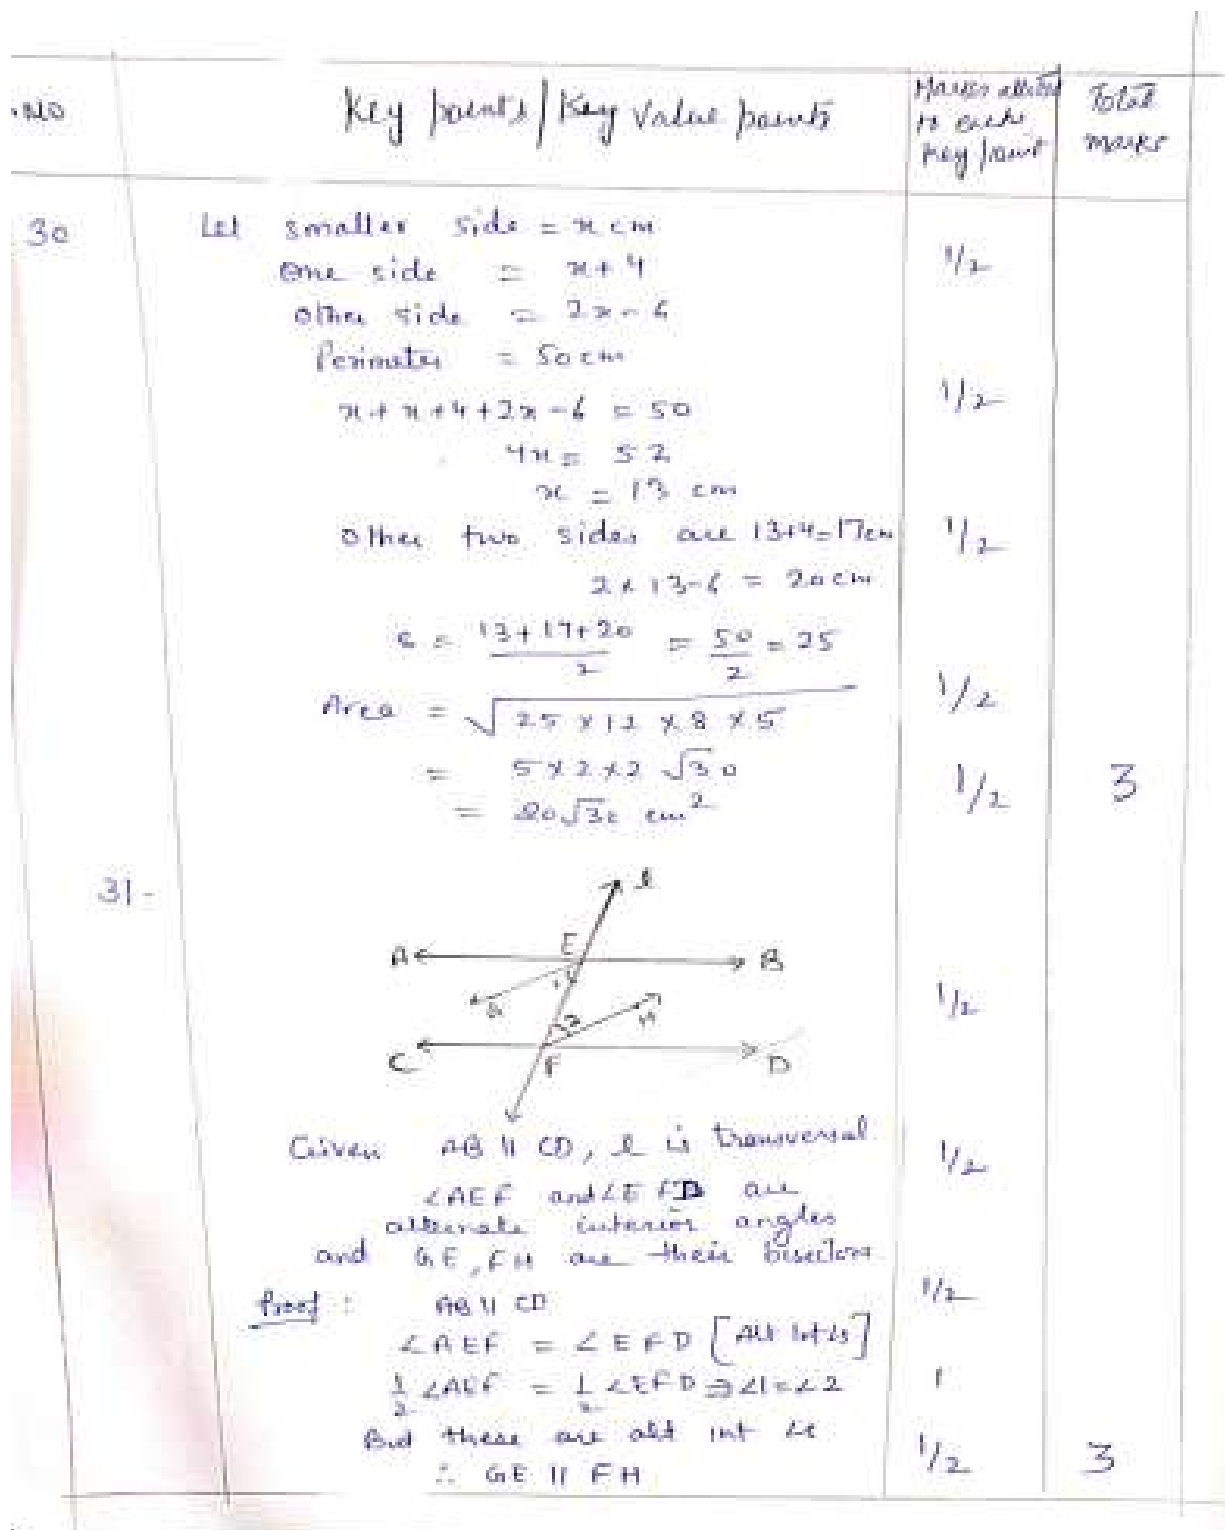 .NO Key points/Key Value points Marks allotted to each key point Total marks
30 Let smaller side = x cm
One side = x+4 1/2
Other side = 2x-6
Perimeter = 50cm
x+x+4+2x-6 = 50 1/2
4x = 52
x = 13 cm
Other two sides are 13+4=17cm 1/2
2×13-6 = 20cm
s = 13+17+20/2 = 50/2 = 25
Area = √25×12×8×5 1/2
= 5×2×2√30 1/2 3
= 20√30 cm²
31-
l
A E B
1
G H 1/2
2
C F D
Given AB || CD, l is transversal 1/2
∠AEF and ∠EFD are
alternate interior angles
and GE, FH are their bisectors
Proof: AB || CD 1/2
∠AEF = ∠EFD [Alt Int ∠s]
1/2 ∠AEF = 1/2 ∠EFD ⇒ ∠1=∠2 1
But these are alt int ∠s
∴ GE || FH 1/2 3